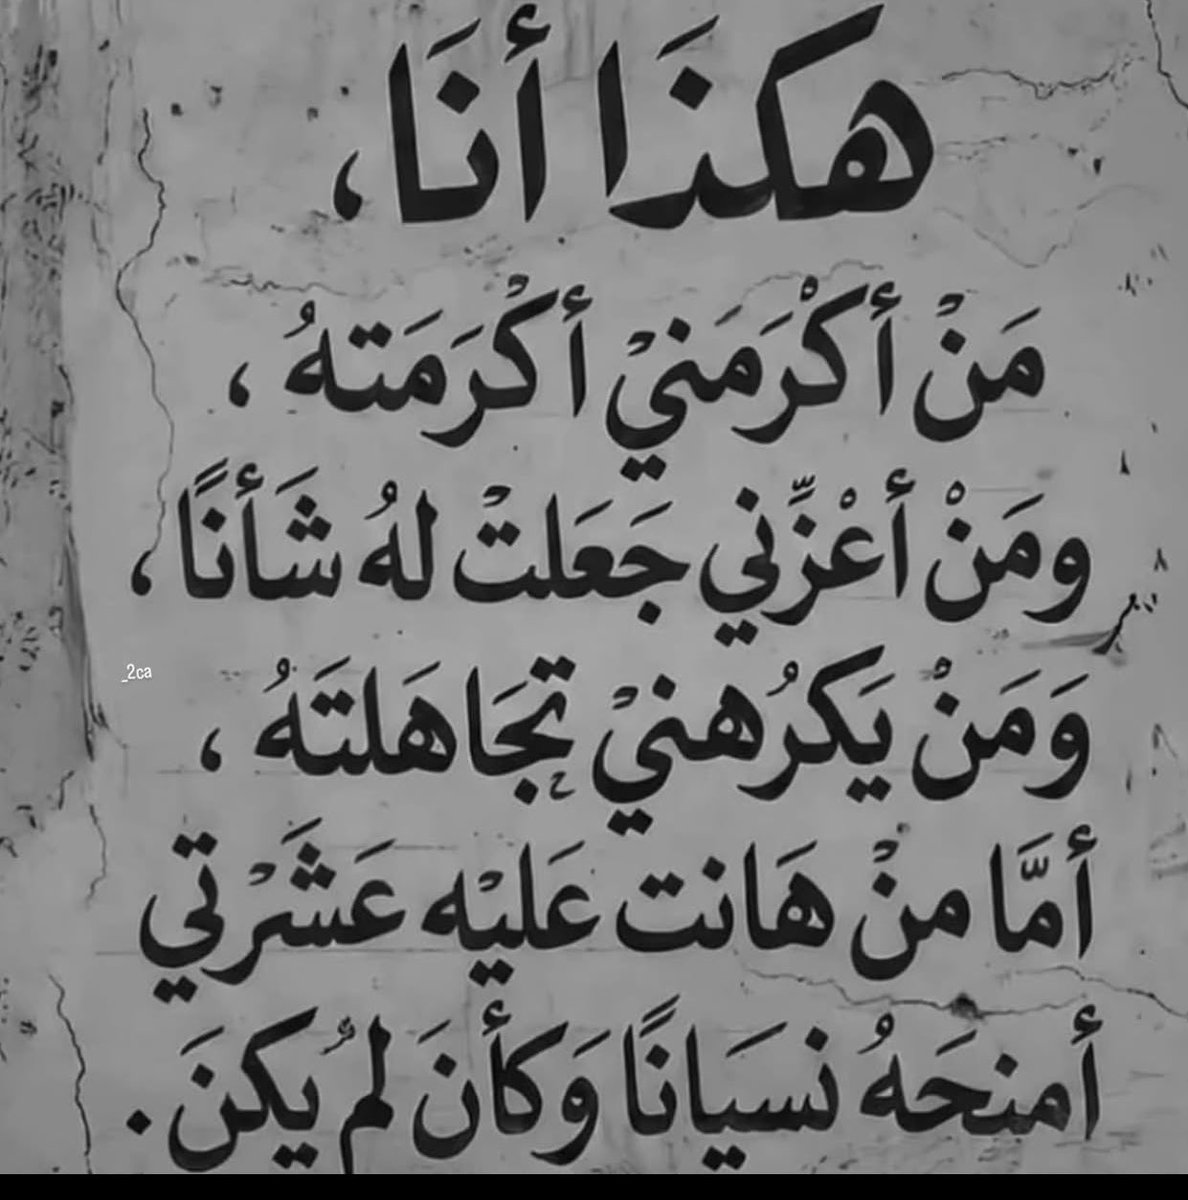 هكذَا أنَا،
مَنْ أكْرَمَنيْ أكْرَمَتهُ ،
ومَنْ أعْزِّني جَعَلتْ لهُ شَأنًا ،
_2ca
وَمَنْ يَكرُهنيْ تجَاهَلتَهُ ،
أمَّا منْ هَانت عَليْه عَشَرْتي
أمنحَهُ نسيَانًا وَكأنَ لمُ يكنَ .